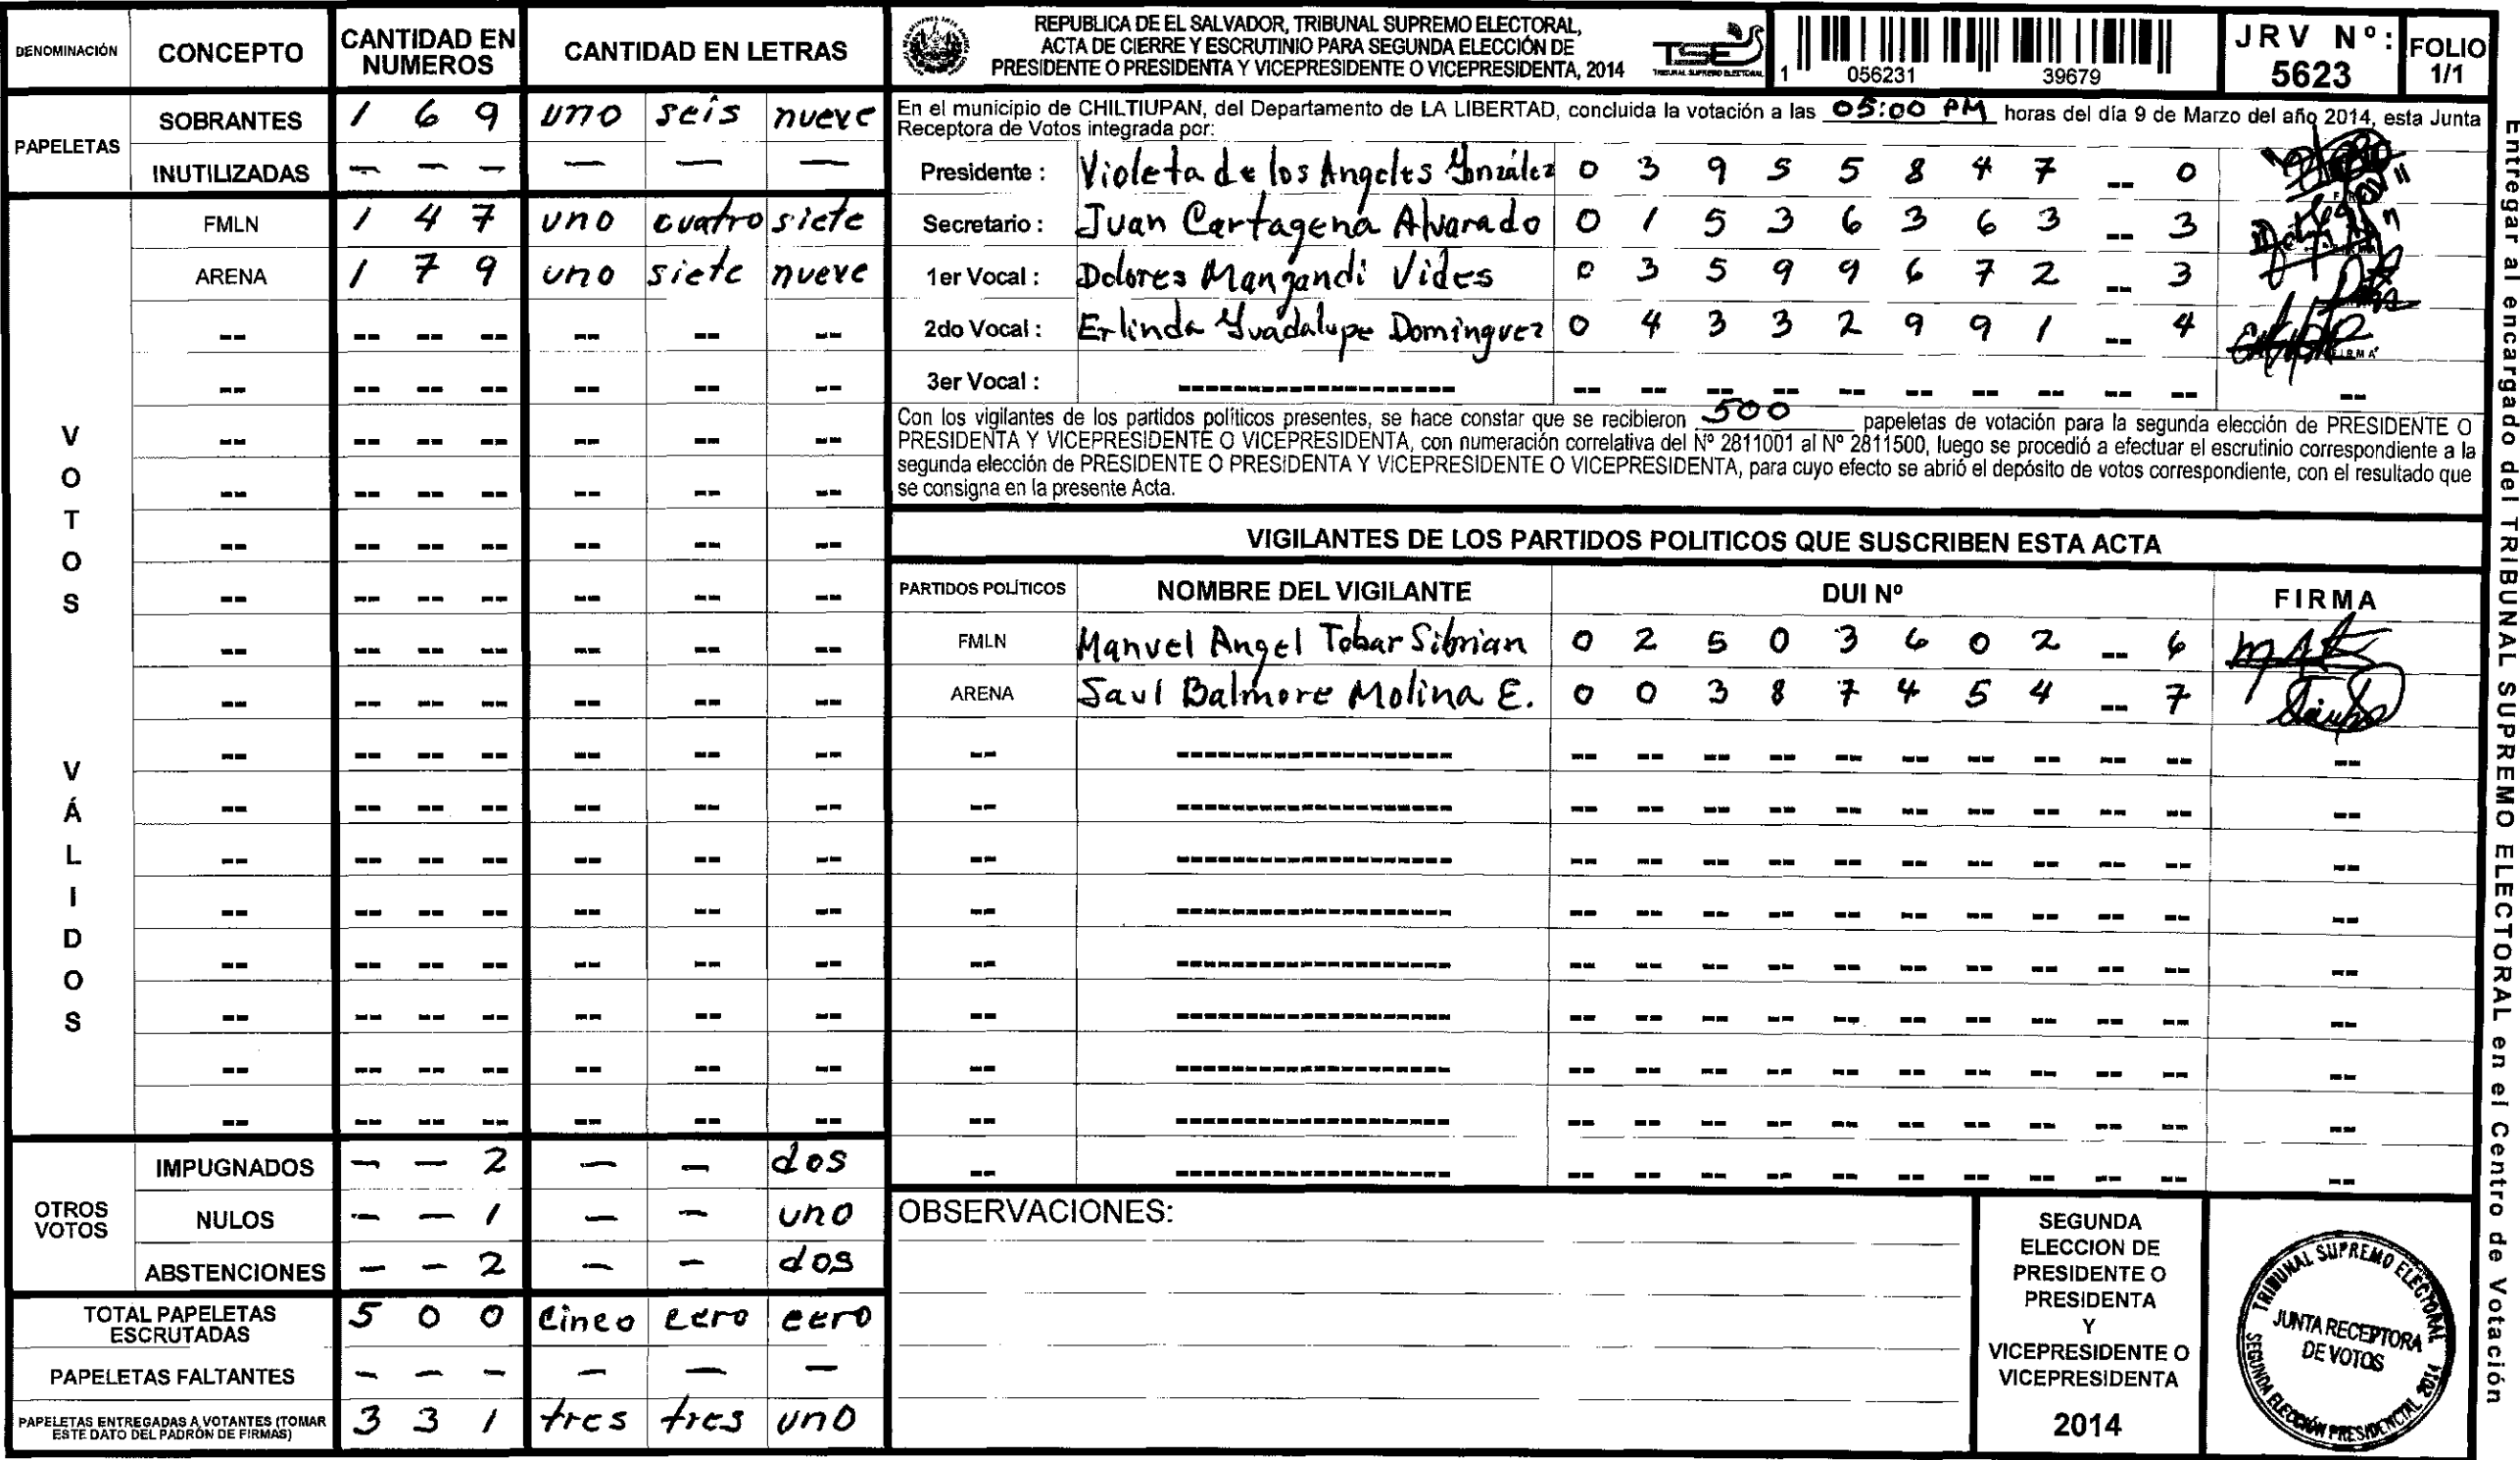 DENOMINACIÓN CONCEPTO CANTIDAD EN NUMEROS CANTIDAD EN LETRAS
PAPELETAS
SOBRANTES 1 6 9 uno seis nueve
INUTILIZADAS - - - - - -
VOTOS VÁLIDOS
FMLN 1 4 7 uno cuatro siete
ARENA 1 7 9 uno siete nueve
OTROS VOTOS
IMPUGNADOS - - 2 - - dos
NULOS - - 1 - - uno
ABSTENCIONES - - 2 - - dos
TOTAL PAPELETAS ESCRUTADAS 5 0 0 cinco cero cero
PAPELETAS FALTANTES - - - - - -
PAPELETAS ENTREGADAS A VOTANTES (TOMAR ESTE DATO DEL PADRÓN DE FIRMAS) 3 3 1 tres tres uno
REPUBLICA DE EL SALVADOR, TRIBUNAL SUPREMO ELECTORAL,
ACTA DE CIERRE Y ESCRUTINIO PARA SEGUNDA ELECCIÓN DE
PRESIDENTE O PRESIDENTA Y VICEPRESIDENTE O VICEPRESIDENTA, 2014
TSE
TRIBUNAL SUPREMO ELECTORAL
1 056231 39679
JRV Nº: 5623
FOLIO 1/1
En el municipio de CHILTIUPAN, del Departamento de LA LIBERTAD, concluida la votación a las 05:00 PM horas del día 9 de Marzo del año 2014, esta Junta
Receptora de Votos integrada por:
Presidente : Violeta de los Angeles González 0 3 9 5 5 8 4 7 -- 0
Secretario : Juan Cartagena Alvarado 0 1 5 3 6 3 6 3 -- 3
1er Vocal : Dolores Mangandi Vides 0 3 5 9 9 6 7 2 -- 3
2do Vocal : Erlinda Guadalupe Dominguez 0 4 3 3 2 9 9 1 -- 4
FIRMA
3er Vocal :
Con los vigilantes de los partidos políticos presentes, se hace constar que se recibieron 500 papeletas de votación para la segunda elección de PRESIDENTE O
PRESIDENTA Y VICEPRESIDENTE O VICEPRESIDENTA, con numeración correlativa del Nº 2811001 al Nº 2811500, luego se procedió a efectuar el escrutinio correspondiente a la
segunda elección de PRESIDENTE O PRESIDENTA Y VICEPRESIDENTE O VICEPRESIDENTA, para cuyo efecto se abrió el depósito de votos correspondiente, con el resultado que
se consigna en la presente Acta.
VIGILANTES DE LOS PARTIDOS POLITICOS QUE SUSCRIBEN ESTA ACTA
PARTIDOS POLÍTICOS NOMBRE DEL VIGILANTE DUI Nº FIRMA
FMLN Manuel Angel Tobar Sibrian 0 2 5 0 3 6 0 2 -- 6
ARENA Saul Balmore Molina E. 0 0 3 8 7 4 5 4 -- 7
OBSERVACIONES:
SEGUNDA
ELECCION DE
PRESIDENTE O
PRESIDENTA
Y
VICEPRESIDENTE O
VICEPRESIDENTA
2014
TRIBUNAL SUPREMO ELECTORAL
JUNTA RECEPTORA
DE VOTOS
SEGUNDA ELECCIÓN PRESIDENCIAL 2014
Entregar al encargado del TRIBUNAL SUPREMO ELECTORAL en el Centro de Votación